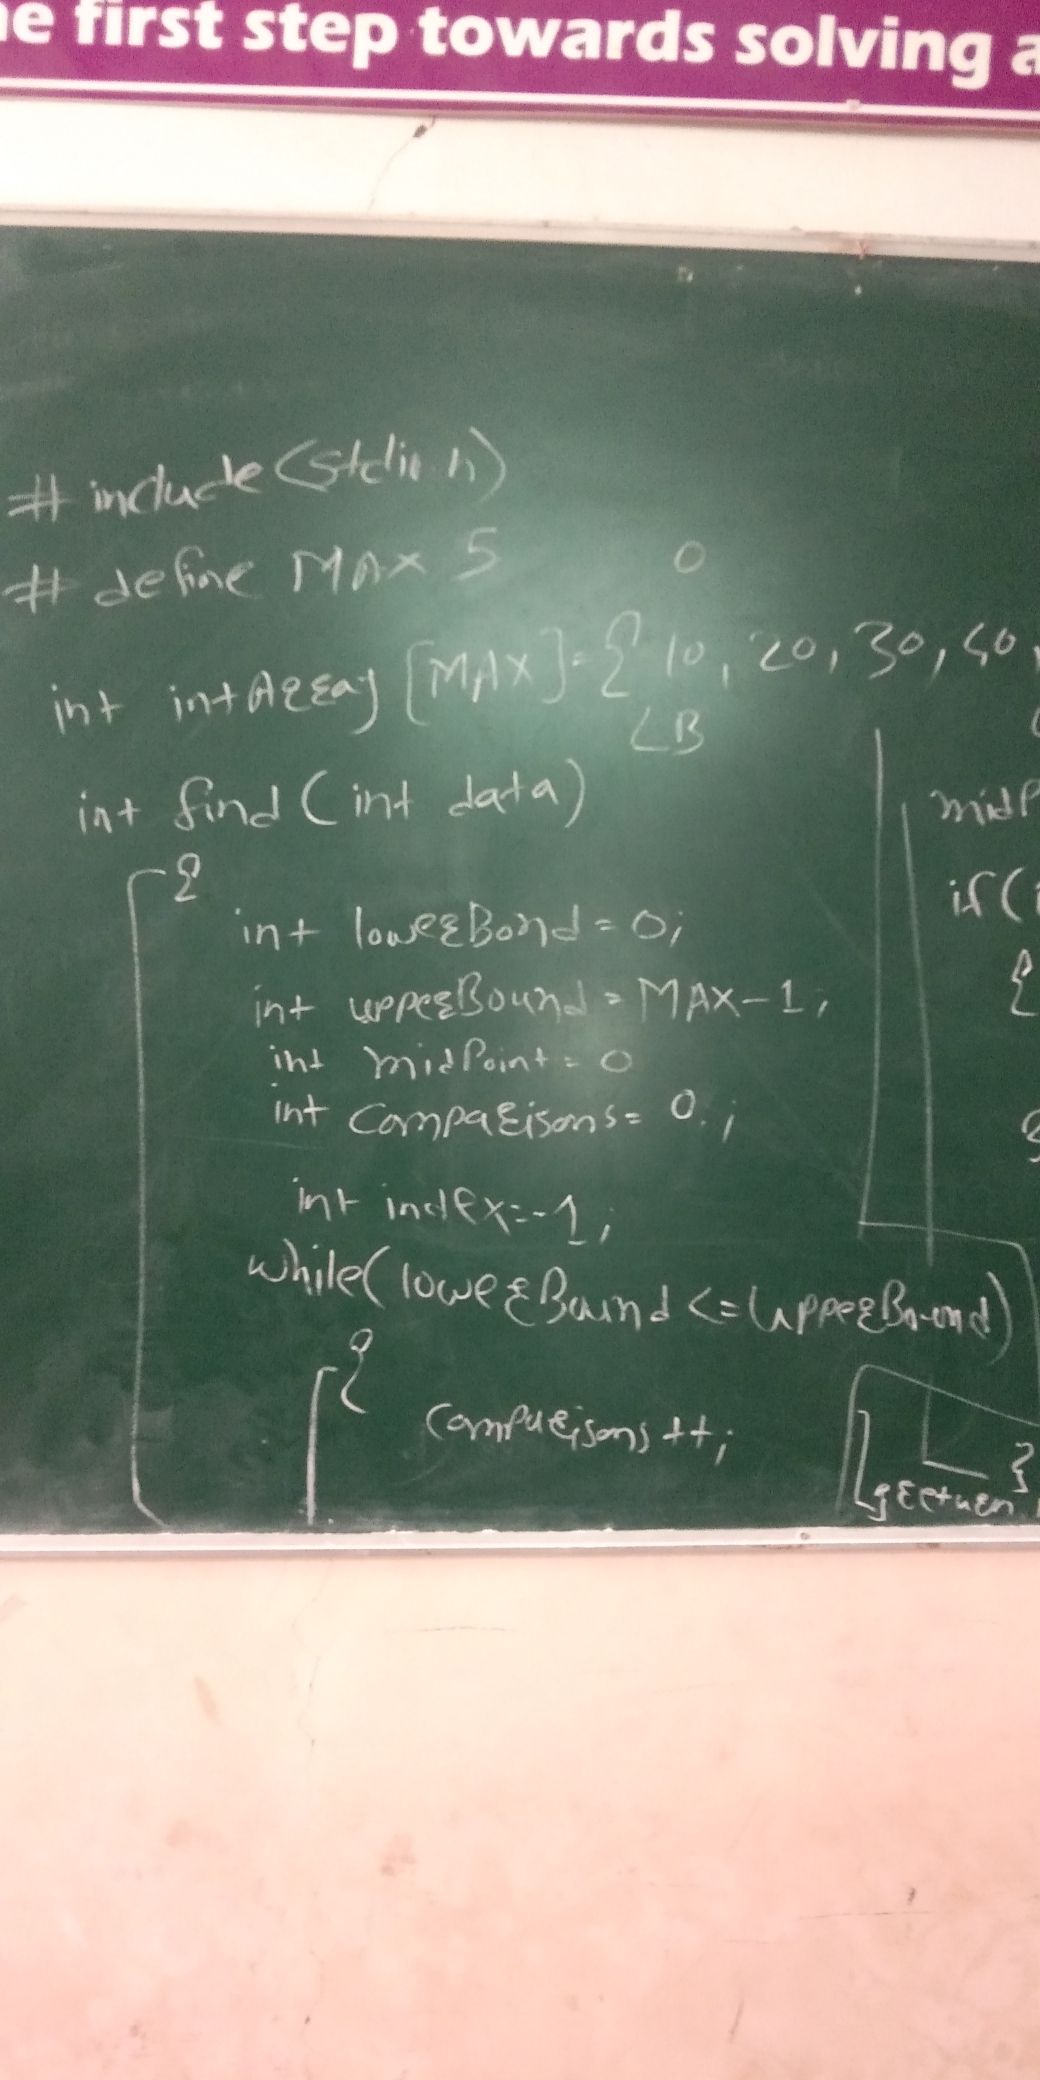 he first step towards solving a
# include (stdio.h)
# define MAX 5
0
int intArray [MAX]={10, 20, 30, 40,
LB
int find (int data)
{
int lowerBond = 0;
int upperBound = MAX-1;
int midPoint = 0
int comparisons = 0;
int index=-1;
while( lowerBound <= upperBound)
{
comparisons ++;
midP
if (i
{
}
return